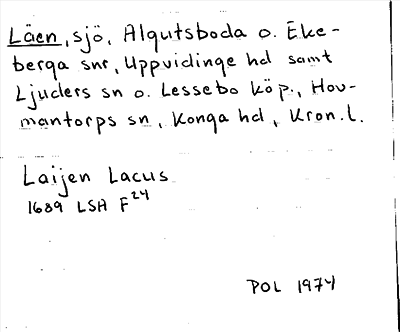 Läen, sjö, Algutsboda o. Eke-
berga snr, Uppvidinge hd samt
Ljuders sn o. Lessebo köp., Hov-
mantorps sn, Konga hd, Kron.l.
Laijen Lacus
1689 LSA F24
POL 1974